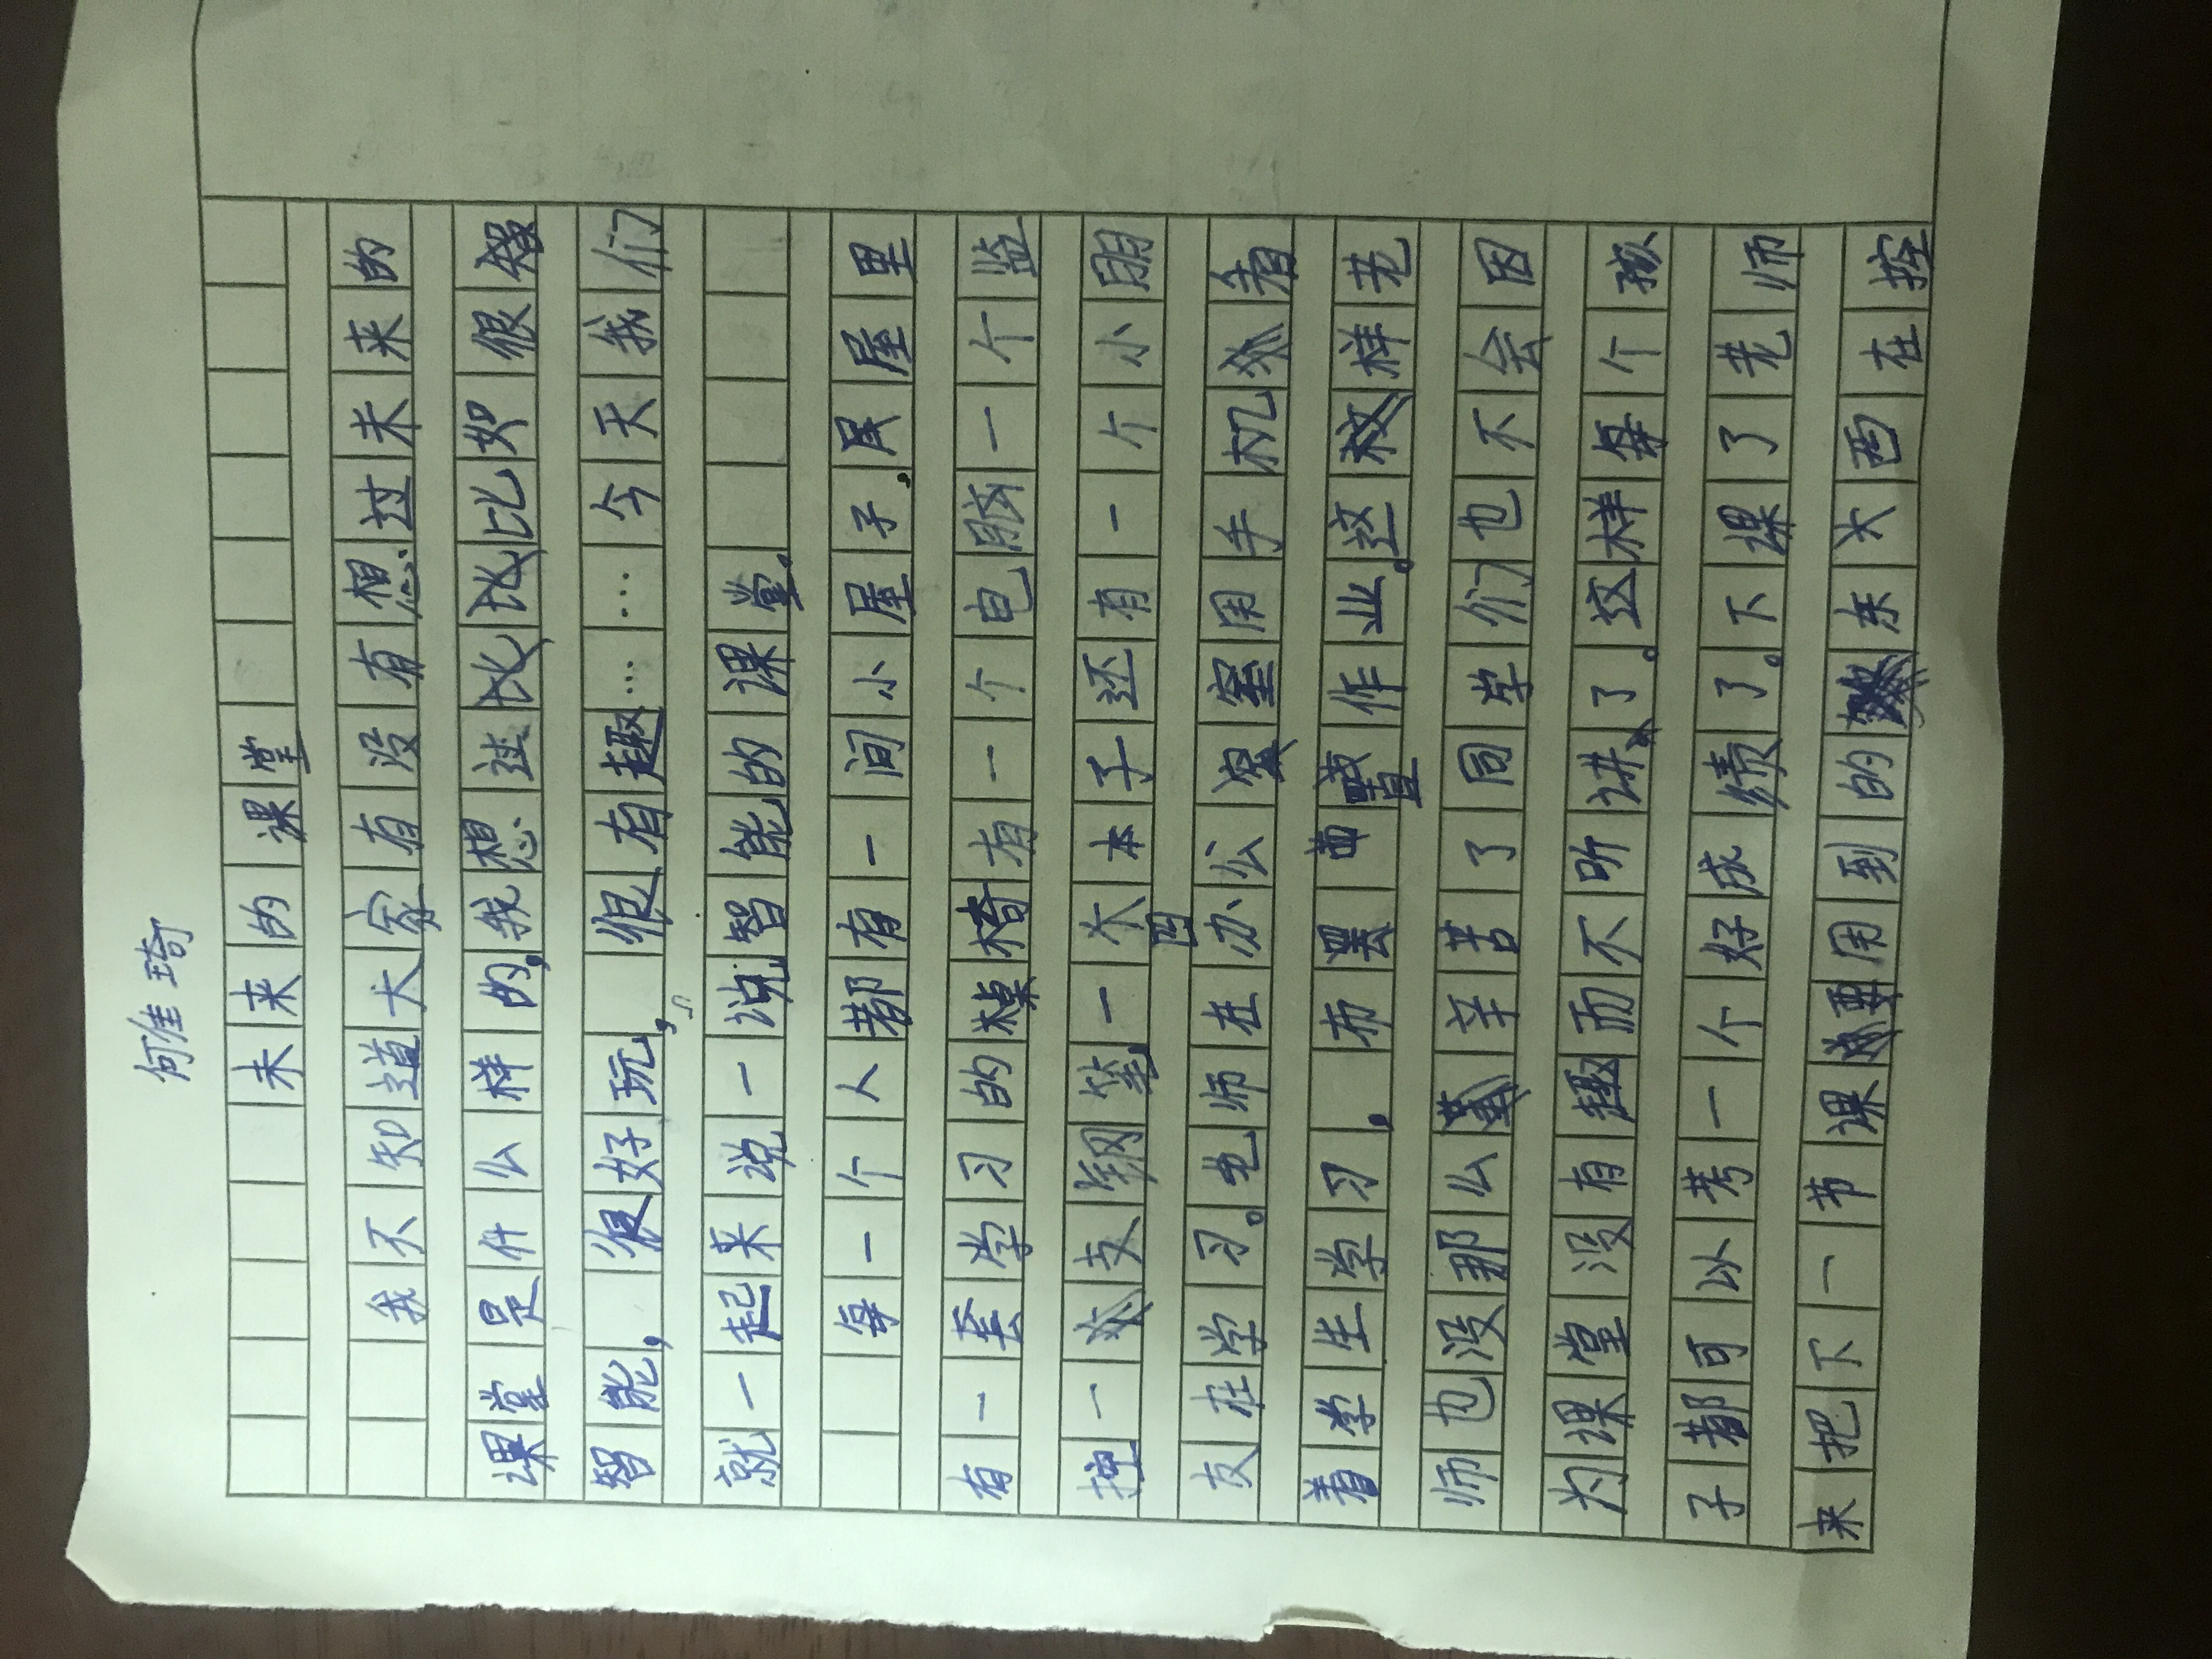 何佳琦
未来的课堂
我不知道大家有没有想过未来的
课堂是什么样的,我想过比如很智
智能,很好玩,很有趣……今天我们
就一起来说一说智能的课堂。
每一个人都有一间小屋子,屋里
有一套学习的桌椅有一个电脑一个监
控一支钢笔,一大本子还有一个小朋
友在学习。老师在办公室用手机看
着学生学习,布置作业。这样老
师也没那么辛苦了同学们也不会因
为课堂没有趣而不听讲了。这样每个孩
子都可以考一个好成绩了。下课了老师
来把下一节课要用到的东西在控